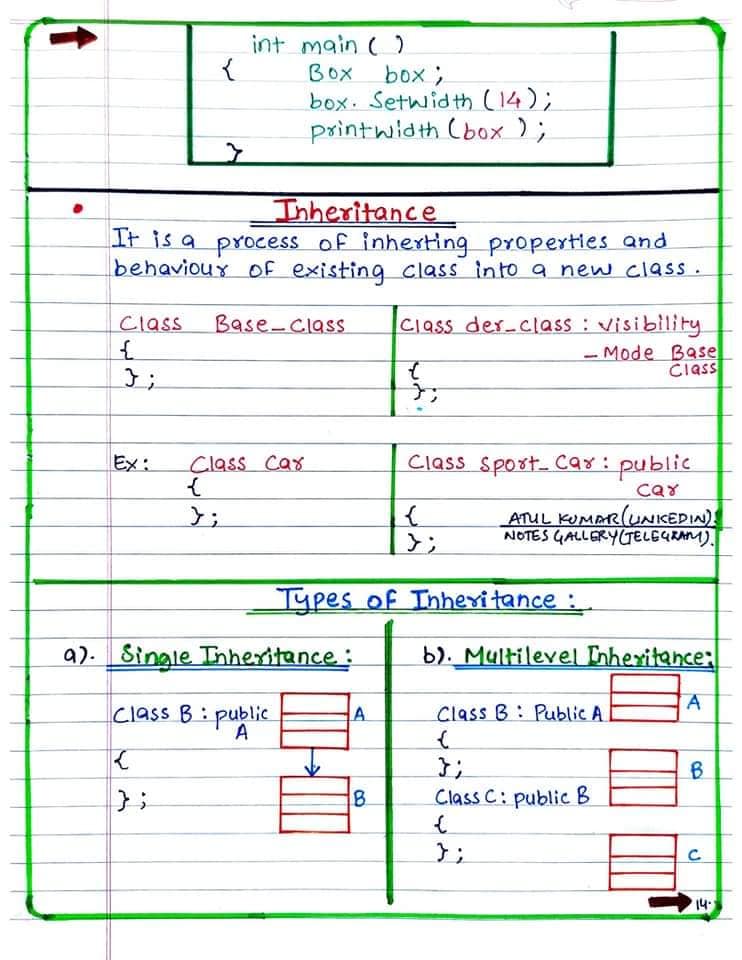 int main ( )
{ Box box ;
box. SetWidth (14) ;
printwidth (box ) ;
}
Inheritance
It is a process of inherting properties and
behaviour of existing class into a new class .
Class Base_class
{
} ;
Class der_class : visibility
- Mode Base
Class
{
} ;
Ex : Class Car
{
} ;
Class sport_Car : public
Car
{
} ;
ATUL KUMAR(LINKEDIN).
NOTES GALLERY(TELEGRAM).
Types of Inheritance :
a). Single Inheritance :
Class B : public
A
{
} ;
A
B
b). Multilevel Inheritance:
Class B : Public A
{
} ;
Class C : public B
{
} ;
A
B
C
14.